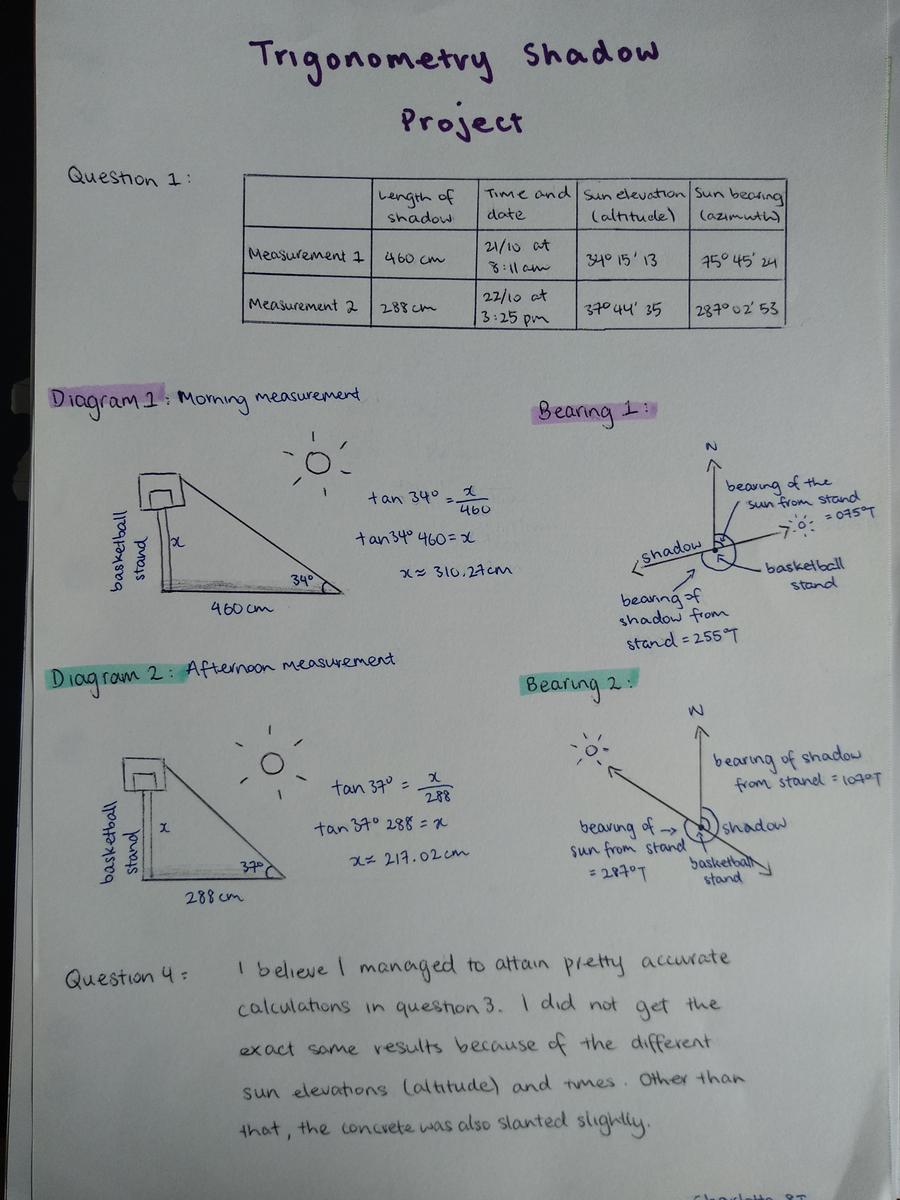 Trigonometry Shadow
Project
Question 1:
Length of shadow | Time and date | Sun elevation (altitude) | Sun bearing (azimuth)
Measurement 1 | 460 cm | 21/10 at 8:11 am | 34° 15' 13 | 75° 45' 24
Measurement 2 | 288 cm | 22/10 at 3:25 pm | 37° 44' 35 | 287° 02' 53
Diagram 1: Morning measurement
basketball
stand
x
34°
460 cm
tan 34° = x/460
tan 34° 460 = x
x ≈ 310.27cm
Bearing 1:
N
bearing of the
sun from stand
= 075°T
shadow
basketball
stand
bearing of
shadow from
stand = 255°T
Diagram 2: Afternoon measurement
basketball
stand
x
37°
288 cm
tan 37° = x/288
tan 37° 288 = x
x ≈ 217.02cm
Bearing 2:
N
bearing of shadow
from stand = 107°T
shadow
bearing of
sun from stand
= 287°T
basketball
stand
Question 4:
I believe I managed to attain pretty accurate
calculations in question 3. I did not get the
exact same results because of the different
sun elevations (altitude) and times. Other than
that, the concrete was also slanted slightly.